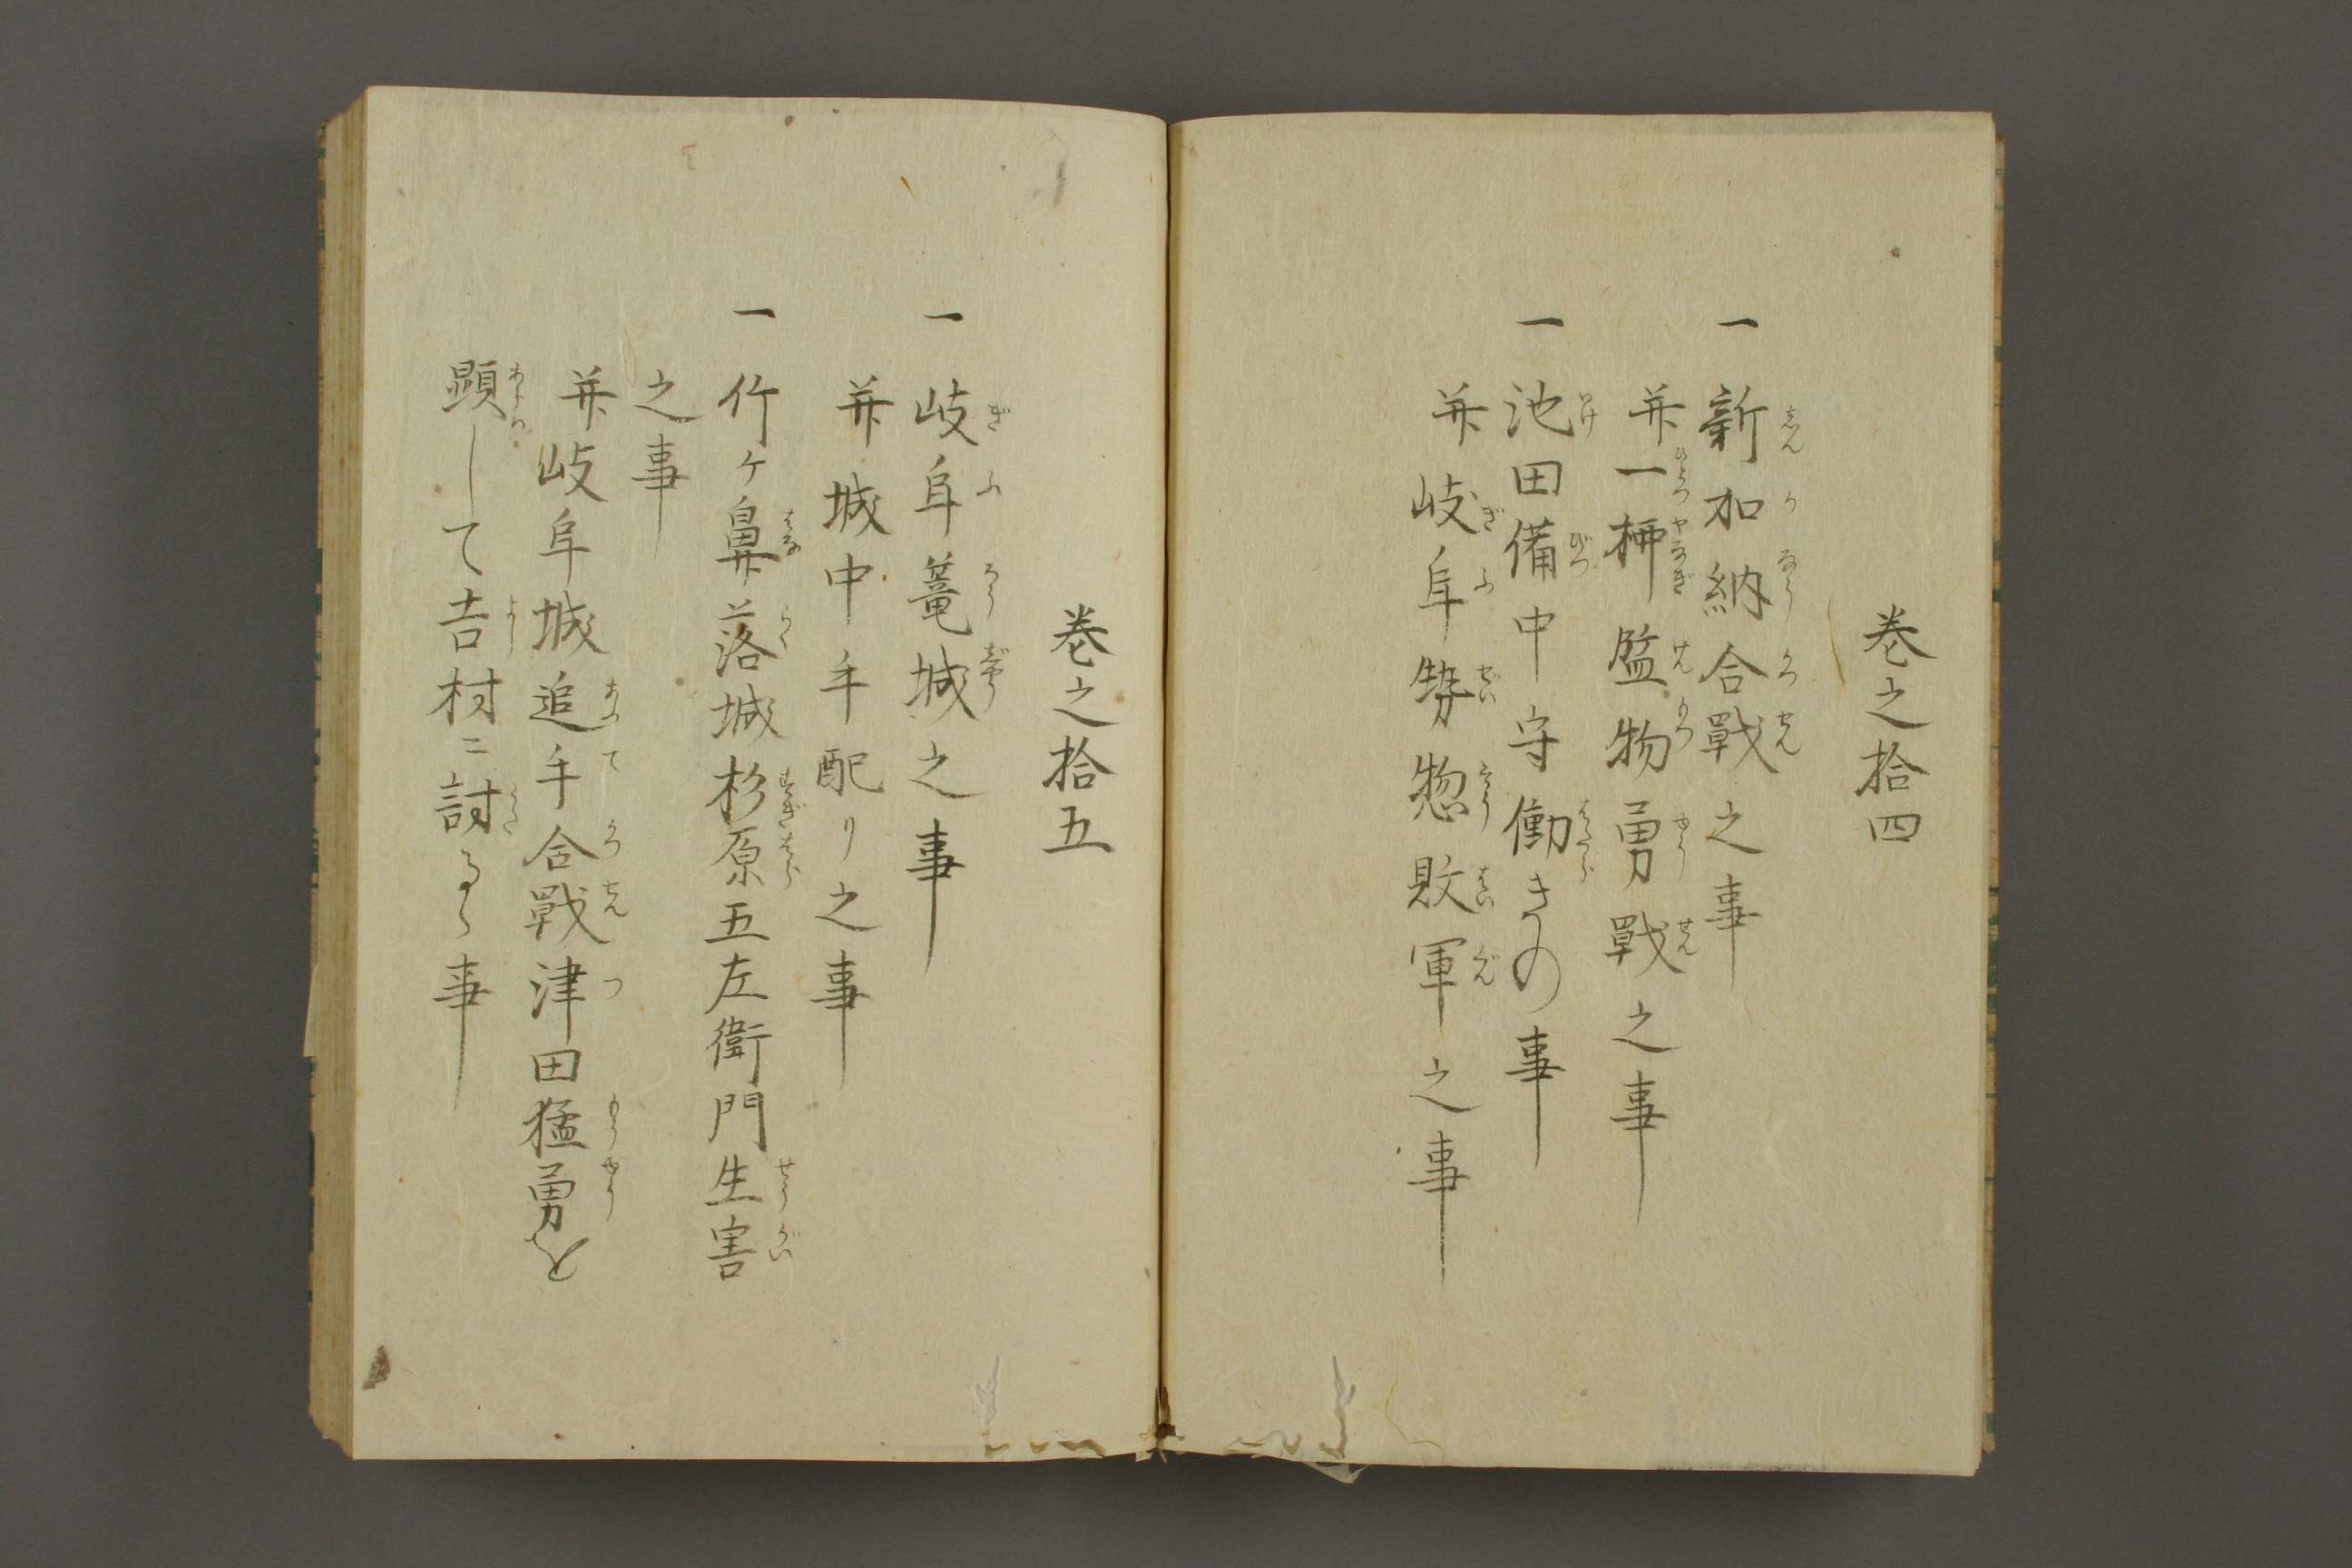 巻之拾四
一新加納合戰之事
并一柳監物勇戰之事
一池田備中守働きの事
并岐阜勢惣敗軍之事
巻之拾五
一岐阜篭城之事
并城中手配り之事
一竹ヶ鼻落城杉原五左衛門生害
之事
并岐阜城追手合戰津田猛勇を
顕して吉村ニ討るゝ事